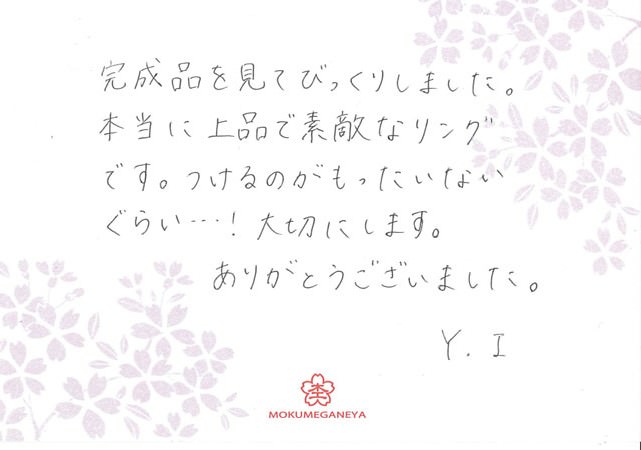 完成品を見てびっくりしました。
本当に上品で素敵なリング
です。つけるのがもったいない
ぐらい…！大切にします。
ありがとうございました。
Y. I
MOKUMEGANEYA